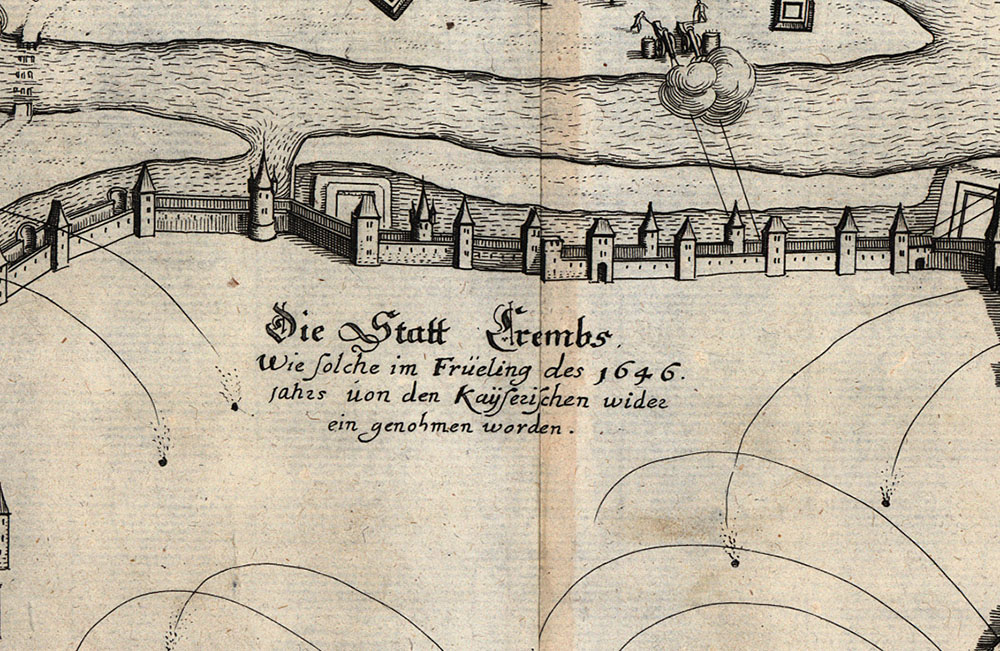 Die Statt Crembs.
Wie solche im Früeling des 1646.
jahrs von den Kaÿserischen wider
ein genohmen worden.